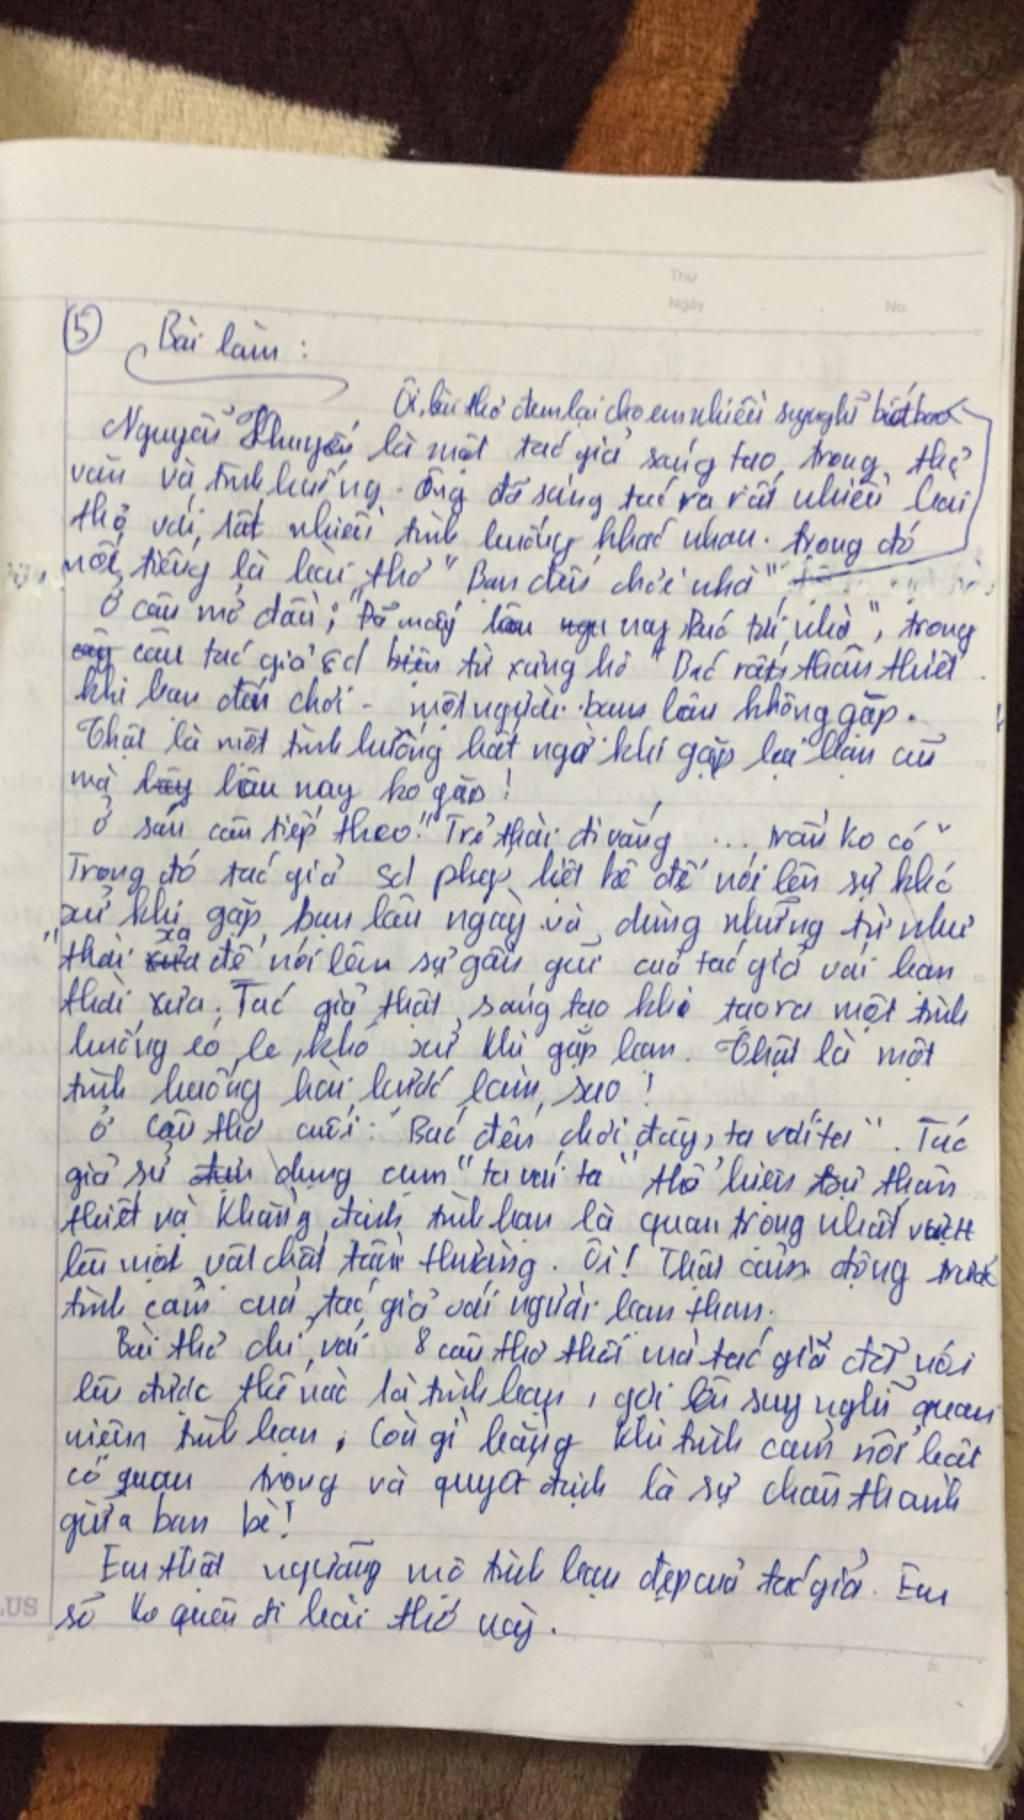 Thứ
Ngày No.
5 Bài làm :
Ôi, bài thơ đem lại cho em nhiều suy nghĩ biết bao
Nguyễn Khuyến là một tác giả sáng tạo trong thơ
văn và tình huống. Ông đã sáng tác ra rất nhiều bài
thơ với rất nhiều tình huống khác nhau. trong đó
nổi tiếng là bài thơ "Bạn đến chơi nhà"
Ở câu mở đầu; "Đã mấy lâu nay Bác tới nhà", trong
câu tác giả sd từ xưng hô "Bác rất thân thiết
khi bạn đến chơi - một người bạn lâu không gặp.
Thật là một tình huống bất ngờ khi gặp lại bạn cũ
mà lâu nay ko gặp!
Ở sáu câu tiếp theo: "Trẻ thời đi vắng ... trầu ko có"
Trong đó tác giả sd phép liệt kê để nói lên sự khó
xử khi gặp bạn lâu ngày và dùng những từ như
"thời xa để nói lên sự gần gũi của tác giả với bạn
thời xưa. Tác giả thật sáng tạo khi tạo ra một tình
huống éo le, khó xử khi gặp bạn. Thật là một
tình huống hài hước làm sao!
Ở câu thơ cuối: "Bác đến chơi đây, ta với ta". Tác
giả sử dụng cụm "ta với ta" thể hiện sự thân
thiết và khẳng định tình bạn là quan trọng nhất vượt
lên mọi vật chất tầm thường. Ôi! Thật cảm động trước
tình cảm của tác giả với người bạn thân.
Bài thơ chỉ với 8 câu thơ thôi mà tác giả đã nói
lên được thế nào là tình bạn, gợi lên suy nghĩ quan
niệm tình bạn. Còn gì bằng khi tình cảm nổi bật
có quan trọng và quyết định là sự chân thành
giữa bạn bè!
Em thật ngưỡng mộ tình bạn đẹp của tác giả. Em
sẽ ko quên đi bài thơ này.
LUS